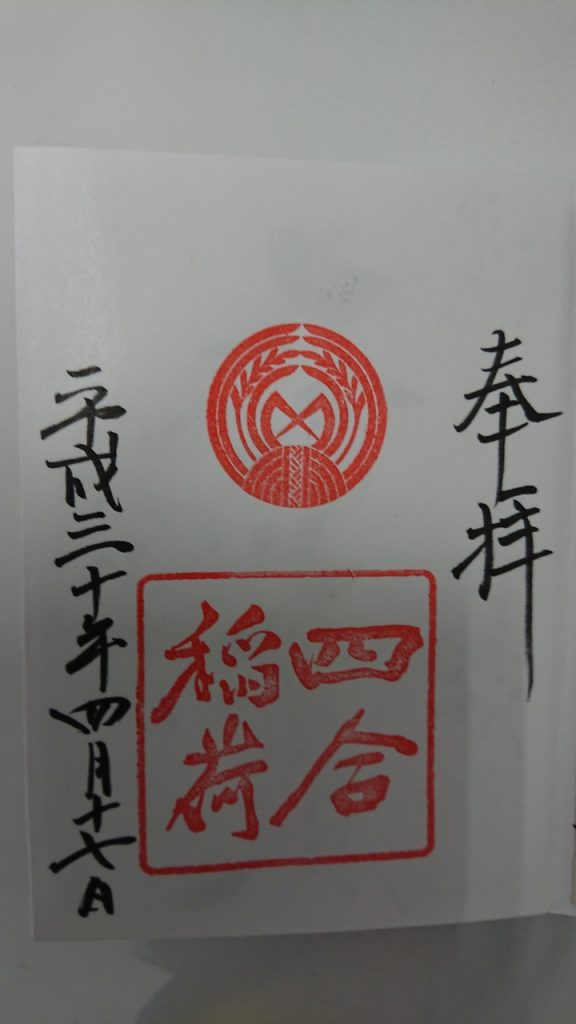 奉拝
四合
稲荷
平成三十年四月十七日